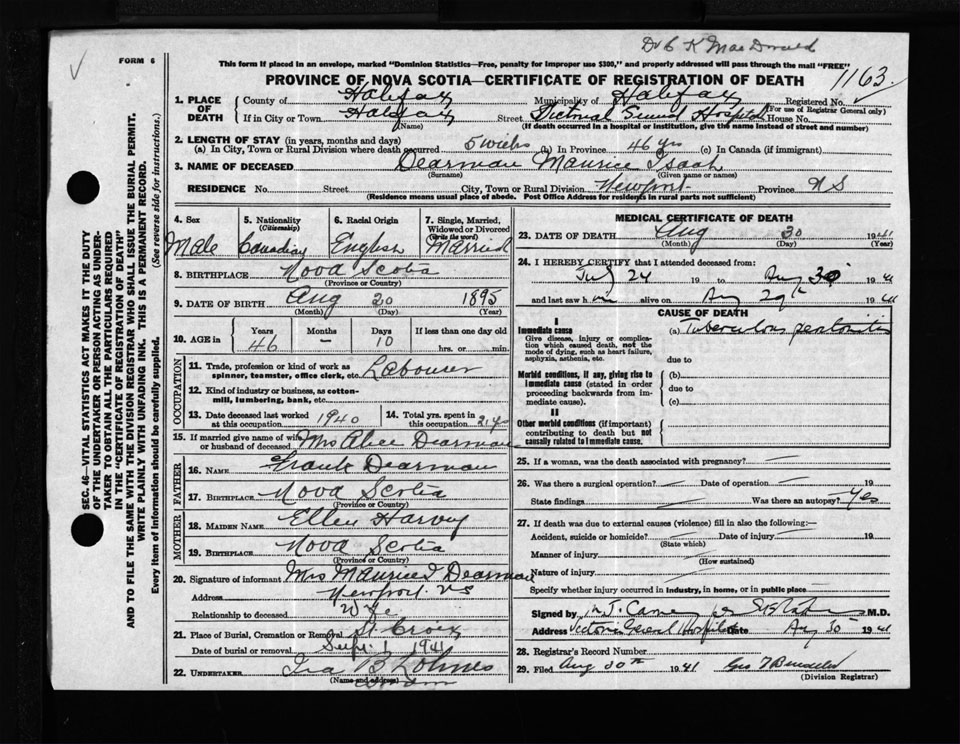 Dr C K MacDonald
FORM 6
This form if placed in an envelope, marked "Dominion Statistics—Free, penalty for improper use $300," and properly addressed will pass through the mail "FREE"
PROVINCE OF NOVA SCOTIA—CERTIFICATE OF REGISTRATION OF DEATH
1163
1. PLACE OF DEATH
County of Halifax Municipality of Halifax Registered No.
(For use of Registrar General only)
If in City or Town Halifax Street Victoria General Hospital House No.
(Name) (If death occurred in a hospital or institution, give the name instead of street and number)
2. LENGTH OF STAY (in years, months and days)
(a) In City, Town or Rural Division where death occurred 5 weeks (b) In Province 46 yrs (c) In Canada (if immigrant)
3. NAME OF DECEASED Dearman Maurice Isaah
(Surname) (Given name or names)
RESIDENCE No. Street City, Town or Rural Division Newport Province N S
(Residence means usual place of abode. Post Office Address for residents in rural parts not sufficient)
SEC. 46—VITAL STATISTICS ACT MAKES IT THE DUTY
OF THE UNDERTAKER OR PERSON ACTING AS UNDER-
TAKER TO OBTAIN ALL THE PARTICULARS REQUIRED
IN THE "CERTIFICATE OF REGISTRATION OF DEATH"
AND TO FILE THE SAME WITH THE DIVISION REGISTRAR WHO SHALL ISSUE THE BURIAL PERMIT.
WRITE PLAINLY WITH UNFADING INK. THIS IS A PERMANENT RECORD.
Every item of Information should be carefully supplied. (See reverse side for instructions.)
4. Sex 5. Nationality (Citizenship) 6. Racial Origin 7. Single, Married, Widowed or Divorced (Write the word)
Male Canadian English Married
8. BIRTHPLACE Nova Scotia
(Province or Country)
9. DATE OF BIRTH Aug 20 1895
(Month) (Day) (Year)
10. AGE in Years Months Days If less than one day old
46 – 10 hrs. or min.
OCCUPATION
11. Trade, profession or kind of work as spinner, teamster, office clerk, etc. Labourer
12. Kind of industry or business, as cotton-mill, lumbering, bank, etc.
13. Date deceased last worked at this occupation 1940 14. Total yrs. spent in this occupation 21 yrs
15. If married give name of wife or husband of deceased Mrs Alice Dearman
FATHER
16. NAME Frank Dearman
17. BIRTHPLACE Nova Scotia
(Province or Country)
MOTHER
18. MAIDEN NAME Ellen Harvey
19. BIRTHPLACE Nova Scotia
(Province or Country)
20. Signature of informant Mrs Maurice Dearman
Address Newport NS
Relationship to deceased Wife
21. Place of Burial, Cremation or Removal St Croix
Date of burial or removal Sept 1 1941
22. UNDERTAKER Ira B
(Name and address)
MEDICAL CERTIFICATE OF DEATH
23. DATE OF DEATH Aug 30 1941
(Month) (Day) (Year)
24. I HEREBY CERTIFY that I attended deceased from:
July 24 19 to Aug 30 1941
and last saw him alive on Aug 29th 1941
CAUSE OF DEATH
I
Immediate cause (a) Tuberculous peritonitis
Give disease, injury or complication which caused death, not the mode of dying, such as heart failure, asphyxia, asthenia, etc.
due to
Morbid conditions, if any, giving rise to immediate cause (stated in order proceeding backwards from immediate cause).
(b)
due to
(c)
II
Other morbid conditions (if important) contributing to death but not causally related to immediate cause.
25. If a woman, was the death associated with pregnancy? —
26. Was there a surgical operation? — Date of operation — 19
State findings Was there an autopsy? Yes
27. If death was due to external causes (violence) fill in also the following:—
Accident, suicide or homicide? Date of injury 19
(State which)
Manner of injury
(How sustained)
Nature of injury
Specify whether injury occurred in industry, in home, or in public place
Signed by M.D.
Address Victoria General Hospital Date Aug 30 1941
28. Registrar's Record Number
29. Filed Aug 30th 1941 Geo
(Division Registrar)